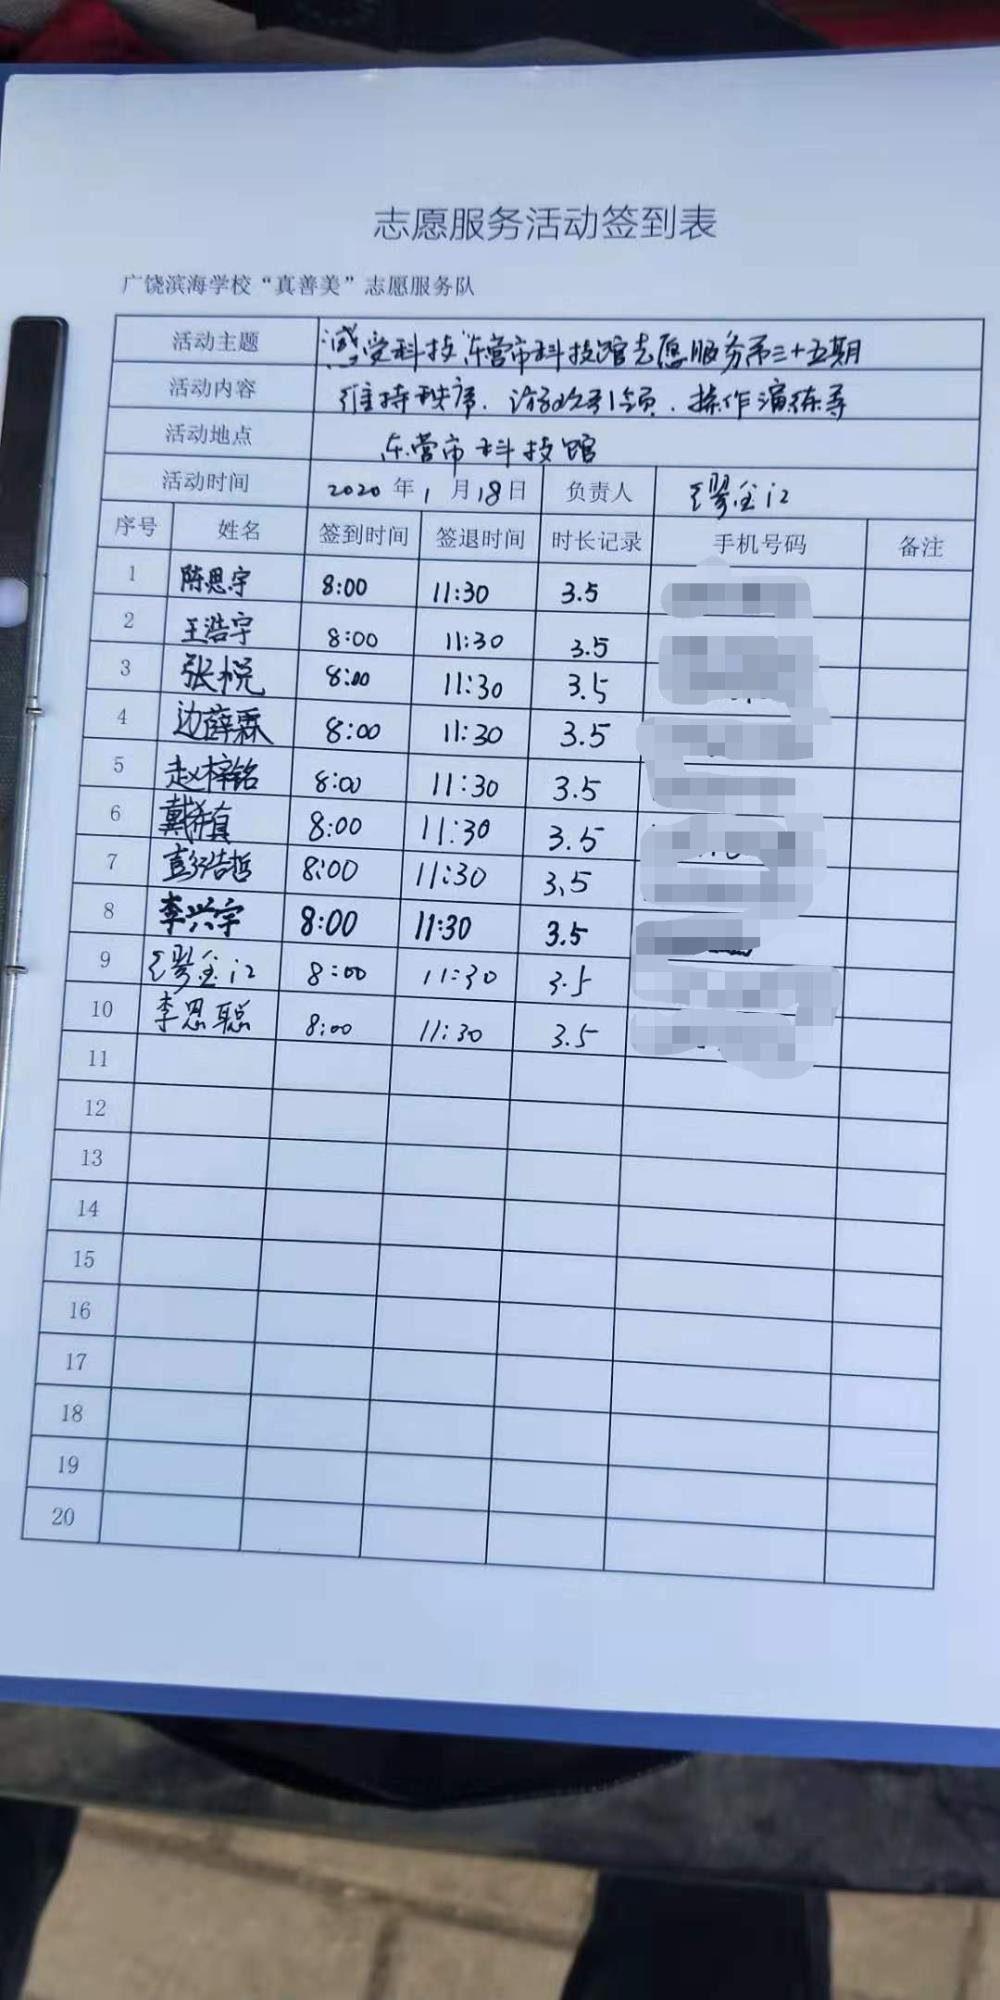 志愿服务活动签到表
广饶滨海学校“真善美”志愿服务队
活动主题 感受科技 东营市科技馆志愿服务第三十五期
活动内容 维持秩序、游客引领、操作演练等
活动地点 东营市科技馆
活动时间 2020年1月18日 负责人
序号 姓名 签到时间 签退时间 时长记录 手机号码 备注
1 陈思宇 8:00 11:30 3.5
2 王浩宇 8:00 11:30 3.5
3 张悦 8:00 11:30 3.5
4 边薛霖 8:00 11:30 3.5
5 赵梓铭 8:00 11:30 3.5
6 8:00 11:30 3.5
7 彭浩哲 8:00 11:30 3.5
8 李兴宇 8:00 11:30 3.5
9 8:00 11:30 3.5
10 李思聪 8:00 11:30 3.5
11
12
13
14
15
16
17
18
19
20